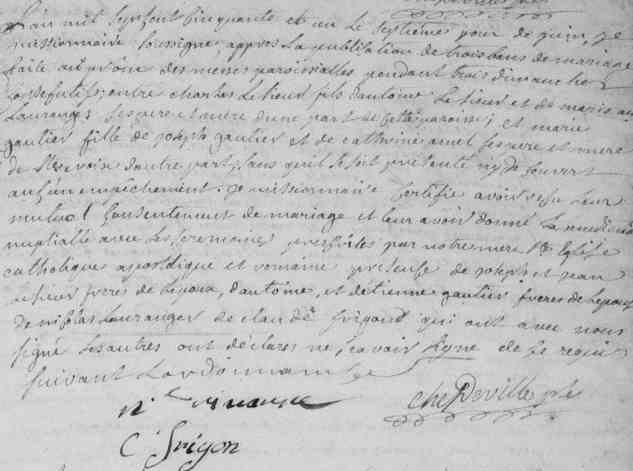 L'an mil sept cent cinquante et un le septieme jour de juin, je
missionnaire soussigne, appres la publication de trois bans de mariage
faite au prône des messes paroissialles pendant trois dimanches
consecutifs, entre charles Letieur fils d'antoine Le sieur et de marie an
Lauranges Les pere et mere d'une part de cette paroisse; et marie
gautier fille de joseph gautier et de catherine Les pere et mere
de d'autre part, sans qu'il se soit presenté ny decouvert
aucun empechement. je missionnaire certifie avoir reçu leur
mutuel consentement de mariage et leur avoir donné La benediction
nuptialle avec Les ceremonies prescrites par notre mere Ste Eglise
catholique apostolique et romaine presence de joseph et jean
lesieur freres de l'epoux, d'antoine, et d'etienne gautier freres de l'epouse
de nicolas Lauranger de claude frigont qui ont avec nous
signé Les autres ont declarés ne sçavoir signe de ce requis
suivant L'ordonnance
che Deville ptre
C frigon